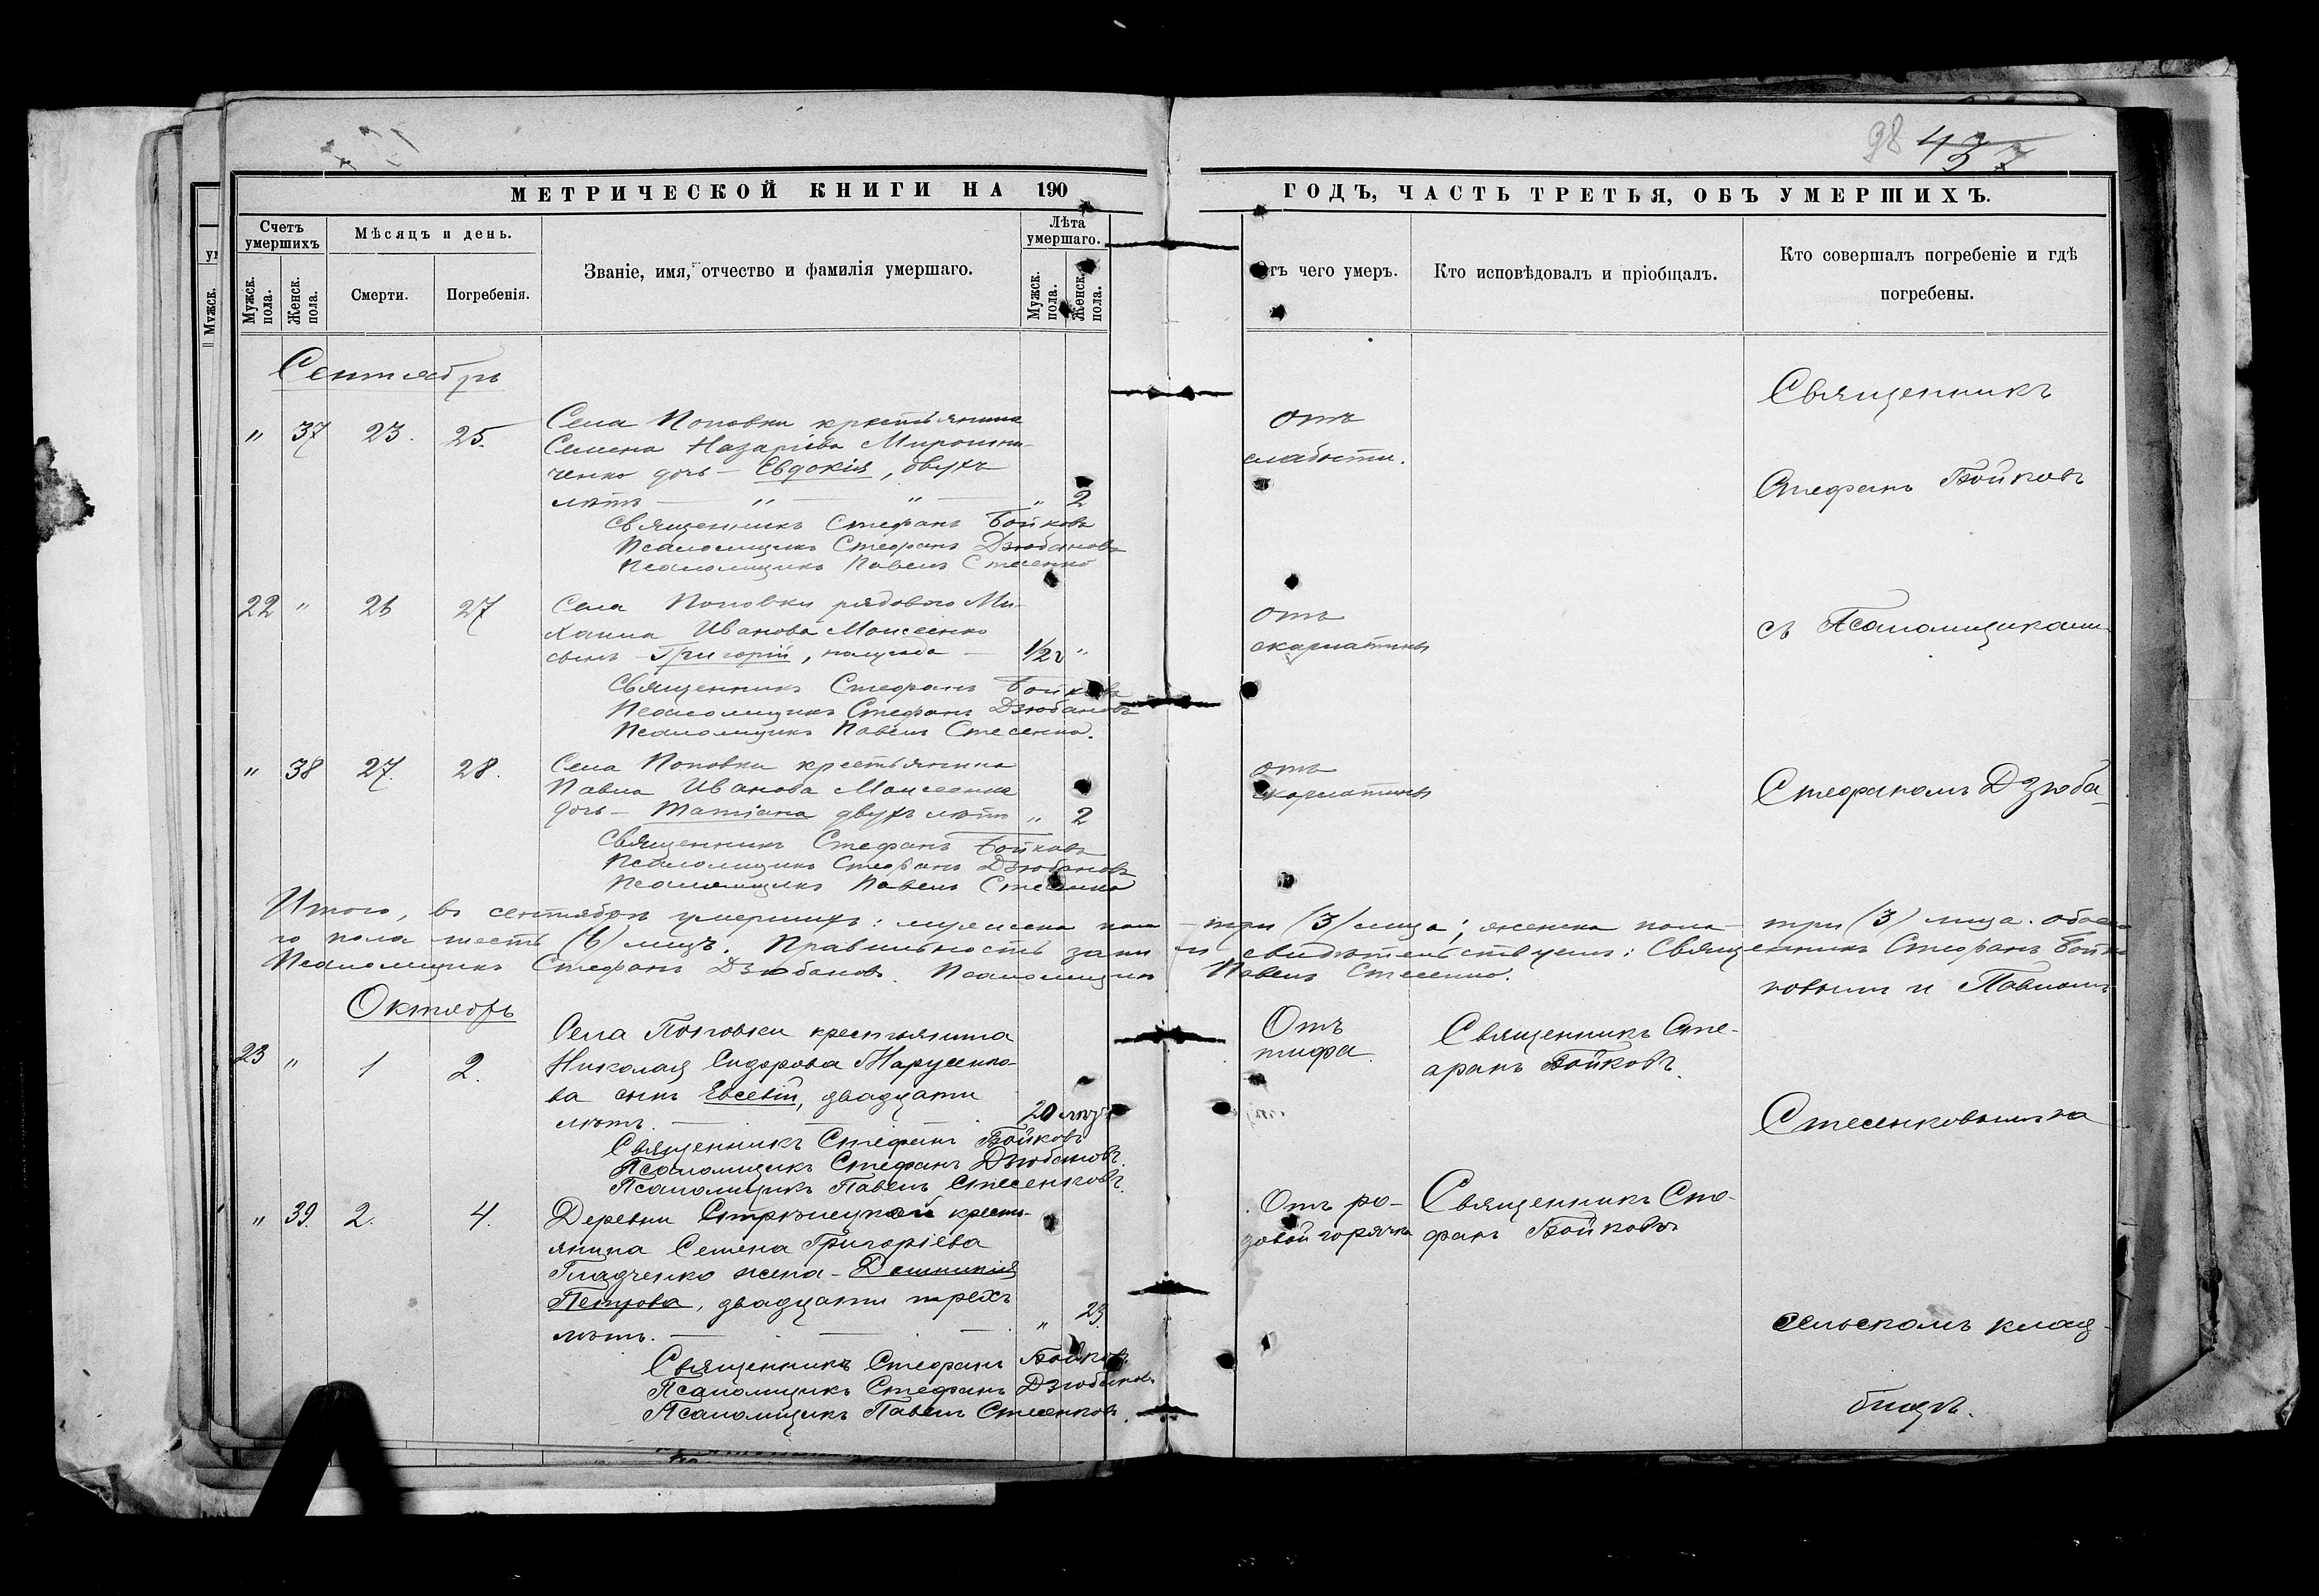 98 437
МЕТРИЧЕСКОЙ КНИГИ НА 190
ГОДЪ, ЧАСТЬ ТРЕТЬЯ, ОБЪ УМЕРШИХЪ.
Счетъ умершихъ
Мѣсяцъ и день.
Званіе, имя, отчество и фамилія умершаго.
Лѣта умершаго.
Мужск. пола.
Женск. пола.
Смерти.
Погребенія.
Мужск. пола.
Женск. пола.
чего умеръ.
Кто исповѣдовалъ и пріобщалъ.
Кто совершалъ погребеніе и гдѣ
погребены.
Мужск.
Сентябрь
" 37 23. 25.
Села Поповки крестьянина
Семена Назаріева Мирошни-
ченко дочь - Евдокія, двухъ
лѣтъ — " — " — " 2
отъ
слабости.
Священникъ Стефанъ Бойковъ
Псаломщикъ Стефанъ Дзюбановъ
Псаломщикъ Павелъ Стесенко
22 " 26 27
Села Поповки рядового Ми-
хаила Иванова Моисеенко
сынъ - Григорій, полугода — 1/2 г "
отъ
скарлатины
Священникъ Стефанъ Бойковъ
Псаломщикъ Стефанъ Дзюбановъ
Псаломщикъ Павелъ Стесенко.
" 38 27. 28.
Села Поповки крестьянина
Павла Иванова Моисеенка
дочь - Татіана двухъ лѣтъ " 2
отъ
скарлатины
Священникъ Стефанъ Бойковъ
Псаломщикъ Стефанъ Дзюбановъ
Псаломщикъ Павелъ Стесенко
Итого, въ сентябрѣ умершихъ: мужеска пола - три (3) лица; женска пола - три (3) лица. Обоего
го пола шесть (6) лицъ. Правильность записи свидѣтельствуемъ: Священникъ Стефанъ Бойко
Псаломщикъ Стефанъ Дзюбановъ. Псаломщикъ Павелъ Стесенко.
Октябрь
23 " 1 2.
Села Поповки крестьянина
Николая Сидорова Марусенко-
ва сынъ Евсевій, двадцати
лѣтъ. — 20 лѣтъ
Отъ
тифа.
Священникъ Сте-
фанъ Бойковъ.
Священникъ Стефанъ Бойковъ
Псаломщикъ Стефанъ Дзюбановъ.
Псаломщикъ Павелъ Стесенковъ.
" 39. 2. 4.
Деревни Стрѣлецкой крестъ-
янина Семена Григоріева
Гладченко жена - Домникія
Петрова, двадцати трехъ
лѣтъ. — — — " 23.
Отъ ро-
довой горячки
Священникъ Сте-
фанъ Бойковъ
Священникъ Стефанъ Бойковъ
Псаломщикъ Стефанъ Дзюбановъ
Псаломщикъ Павелъ Стесенковъ.
Священникъ
Стефанъ Бойковъ
съ Псаломщиками
Стефаномъ Дзюба-
новымъ и Павломъ
Стесенковымъ на
сельскомъ клад-
бищѣ.